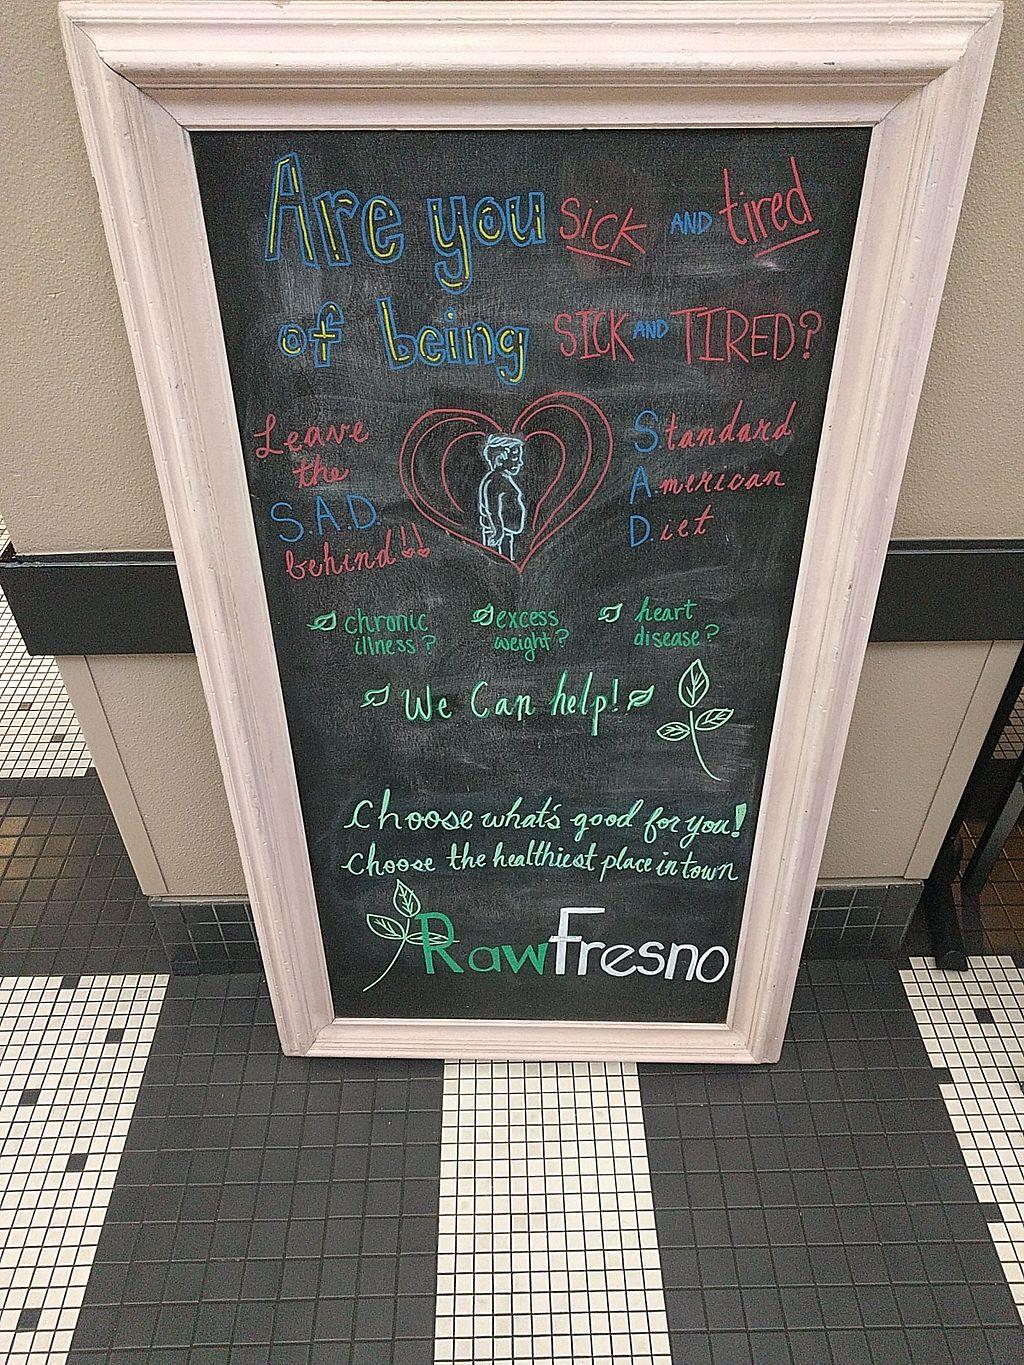 Are you sick AND tired
of being SICK AND TIRED?
Leave
the
S.A.D.
behind!!
Standard
American
Diet
chronic
illness?
excess
weight?
heart
disease?
We Can help!
Choose what's good for you!
Choose the healthiest place in town
RawFresno